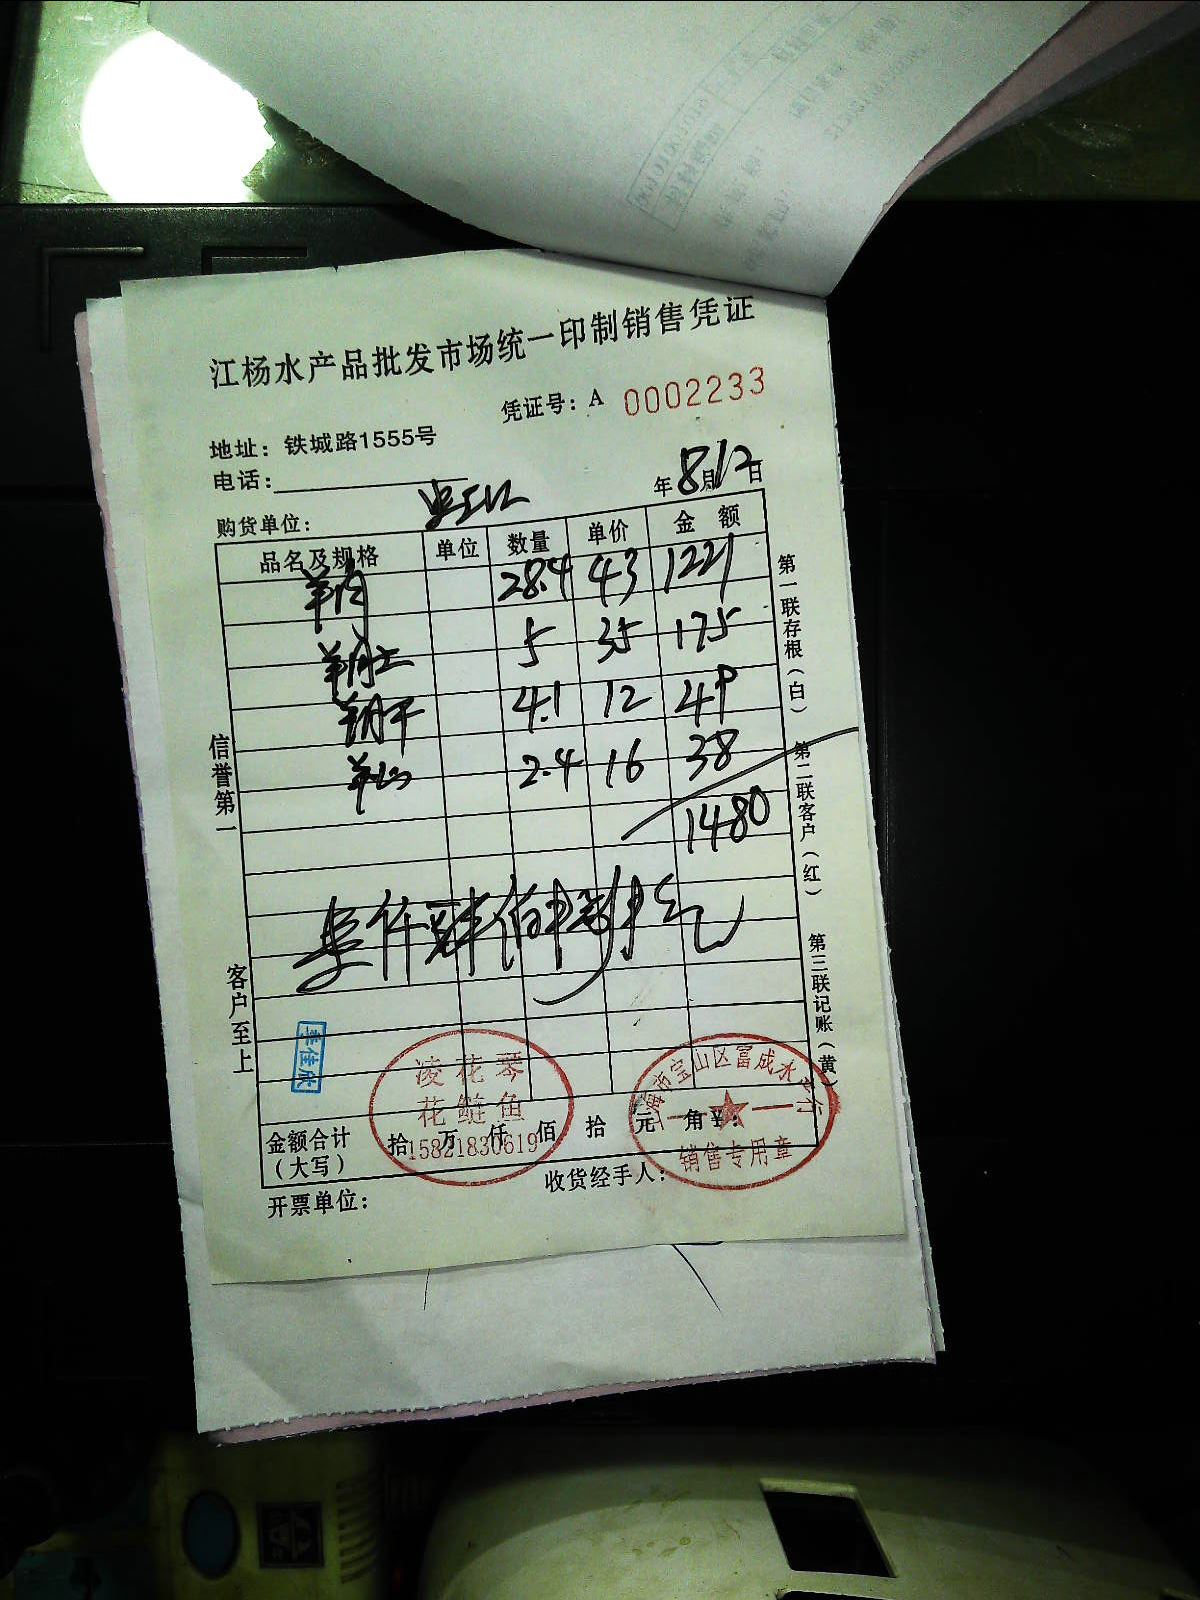 江杨水产品批发市场统一印制销售凭证
凭证号：A 0002233
地址：铁城路1555号
电话：
年8月12日
购货单位：
品名及规格 单位 数量 单价 金额
羊肉 28.4 43 1221
5 35 175
4.1 12 49
2.4 16 38
1480
信誉第一
客户至上
第一联存根（白）
第二联客户（红）
第三联记账（黄）
李佳成
凌花琴
花鲢鱼
15821830619
上海市宝山区富成水产行
销售专用章
金额合计（大写） 拾 万 仟 佰 拾 元 角 ￥：
开票单位：
收货经手人：